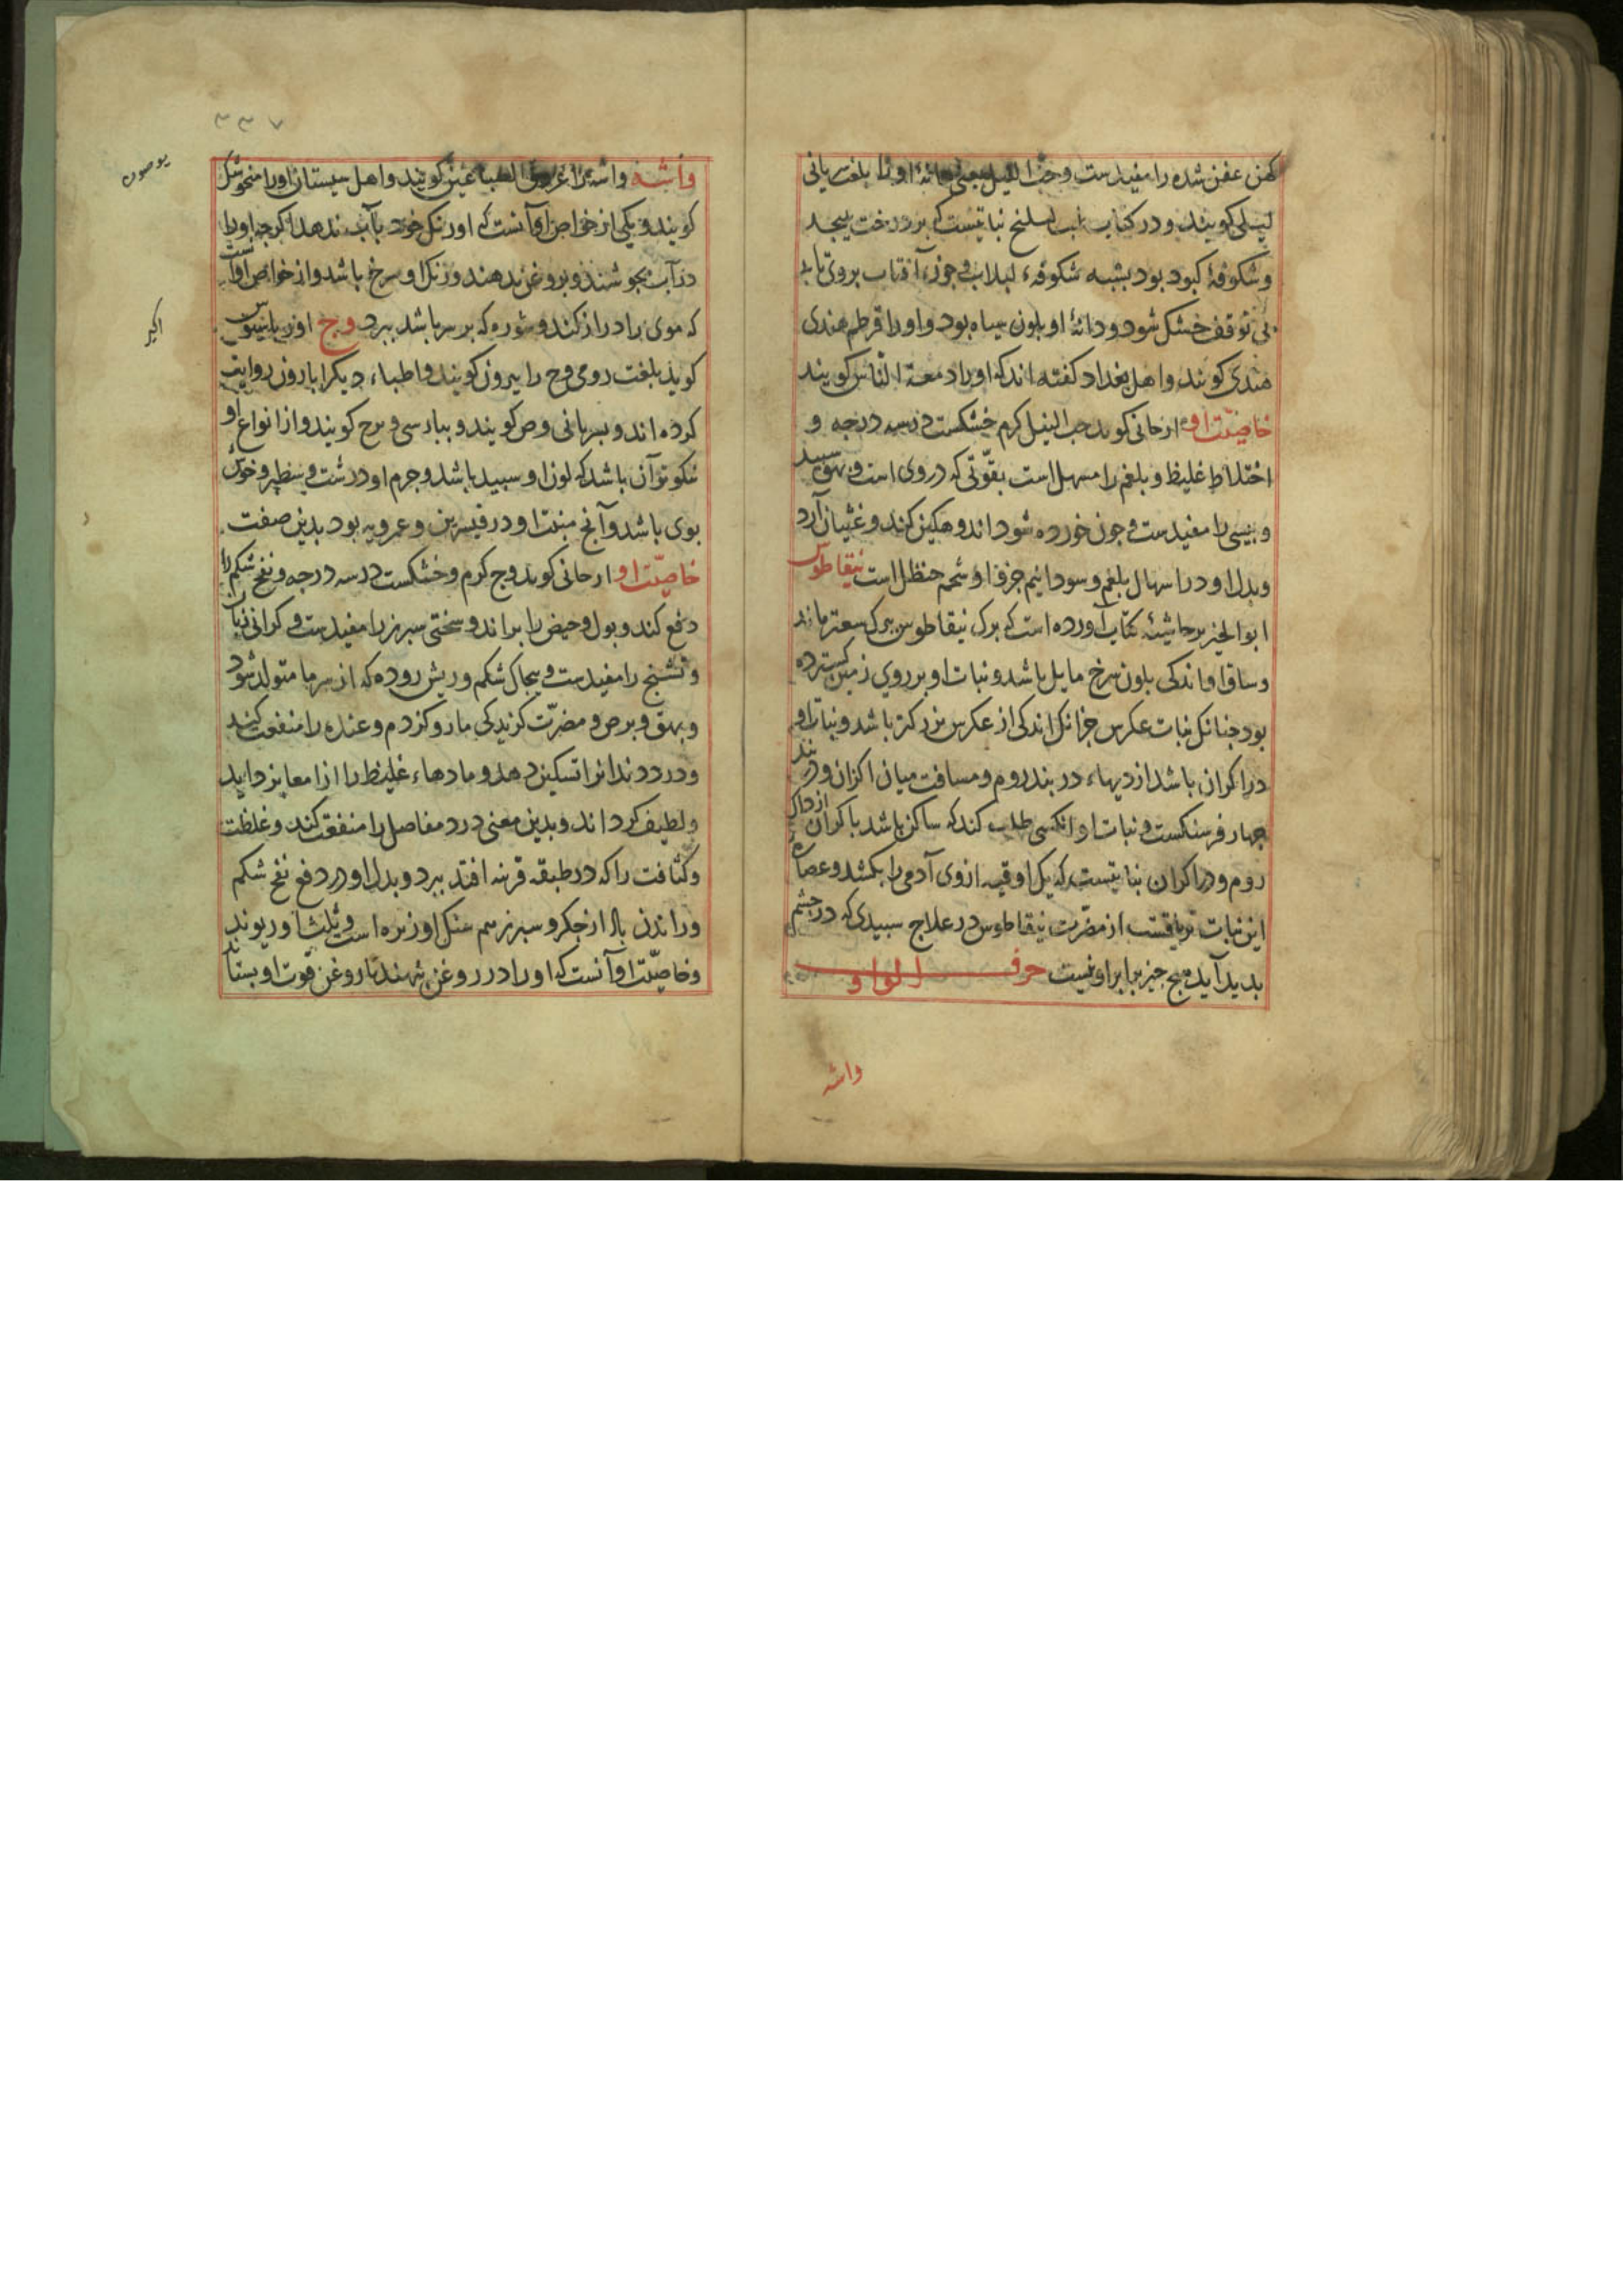 کهن عفن شده را مفیدست وحب النیل یعنی دانهٔ او را بلغت سریانی
لیلی کویند و در کتاب نباتیست که بر درخت بیجد
و شکوفهٔ کبود بود بشبه شکوفهٔ لبلاب و جون آفتاب بروی تابد
بی توقف خشک شود و دانهٔ او بلون سیاه بود و او را قرطم هندی
هندی کویند و اهل بغداد کفته اند که او را دمعة الناس کویند
خاصیّت او ارجانی کوید حب النیل کرم خشکست در سه درجه و
اختلاط غلیظ و بلغم را مسهل است بقوّتی که در وی است و بهق سپید
و پیسی را مفیدست و جون خورده شود اندوهکین کند و غثیان آرد
وبدل او در اسهال بلغم و سودا نیم جزو او شحم حنظل است نیقاطوس
ابو الخیر بر حاشیهٔ کتاب آورده است که برک نیقاطوس ببرک سعتر ماند
وساق او اندکی بلون سرخ مایل باشد و نبات او بر روی زمین کسترده
بود جنانک نبات عکرس جزانک اندکی از عکرس بزرکتر باشد و نبات او
در اکران باشد از دیهاء دربند روم و مسافت میان اکران و دربند
جهار فرسنکست و نبات او انکسی طلب کند که ساکن باشد باکران از دیار
روم و در اکران نباتیست که یک اوقیه ازوی آدمی را بکشد و عصارهٔ
این نبات تریاقست از مضرّت نیقاطوس در علاج سبیدی که در جشم
بدید آید هیج جیز برابر او نیست حرف الواو
واشه
۳۳۷
واشه واشه را کویند و اهل سیستان او را
کویند و یکی از خواص او آنست که اورنک خود بآب ندهد اکرجه او را
در آب بجوشند و بروغن بدهند و رنک او سرخ باشد و از خواص او است
که موی را دراز کند و شوره که بر سر باشد ببرد وج اوریباسیوس
کوید بلغت رومی وج را بیرون کویند و اطباء دیکر ابارون روایت
کرده اند و بسریانی وص کویند و ببارسی و برج کویند و از انواع او
نیکوتر آن باشد که لون او سبید باشد و جرم او درشت و سطبر و خوش
بوی باشد و آنج منبت او در قیسرین و عمرویه بود بدین صفت
خاصیّت او ارجانی کوید وج کرم و خشکست در سه درجه و نفخ شکم را
دفع کند و بول و حیض را براند و سختی سبرز را مفیدست و کرانی زبان
و تشنج را مفیدست و بیجاک شکم و ریش روده که از سرما متولد شود
و بهق و برص و مضرّت کزیدکی مار و کزدم و عنده را منفعت کند
و درد دندانرا تسکین دهد و مادهاء غلیظ را از امعا بزداید
ولطیف کرداند و بدین معنی درد مفاصل را منفعت کند و غلظت
وکثافت را که در طبقه قرنیه افتد ببرد و بدل او در دفع نفخ شکم
و راندن باد از جکر و سبرز هم سنک او زیره است و ثلث او ریوند
و خاصیّت او آنست که او را در روغن نهند تا روغن قوت او بستاند
اکیر